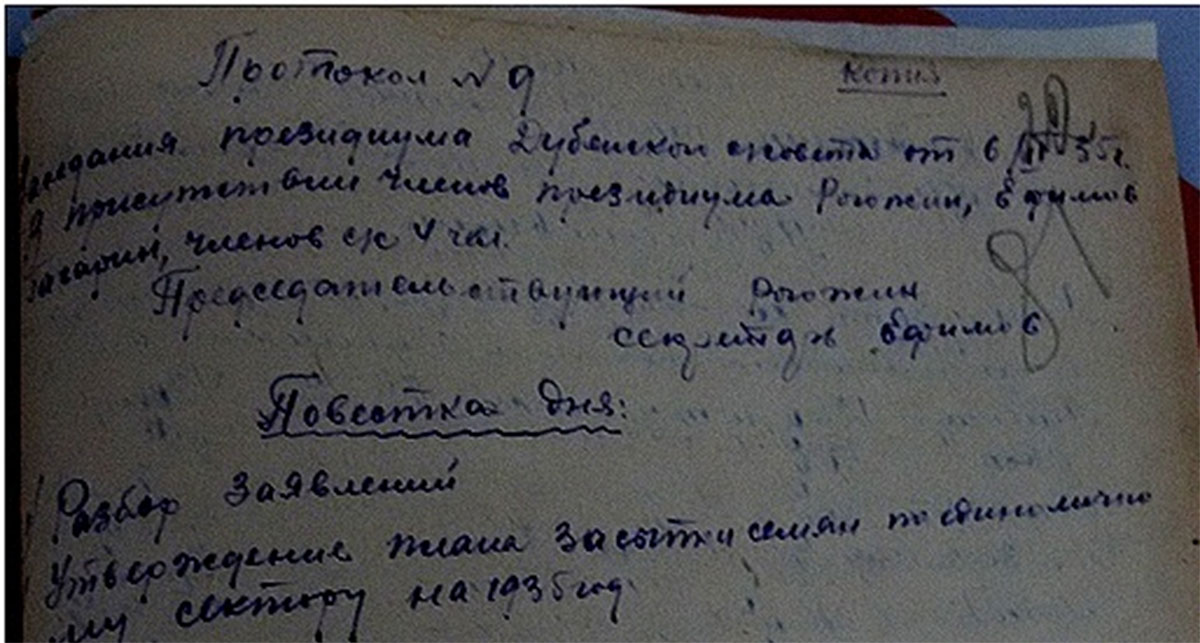 Протокол №9
Копия
заседания президиума Дубенског с/совета от 6/III 35г.
В присутствии членов президиума Рогожин, Ефимов
Гагарин, членов с/с 4 чел.
Председательствующий Рогожин
секретарь Ефимов
Повестка дня:
Разбор заявлений
Утверждение плана засыпки семян по единолично
му сектору на 1935 год